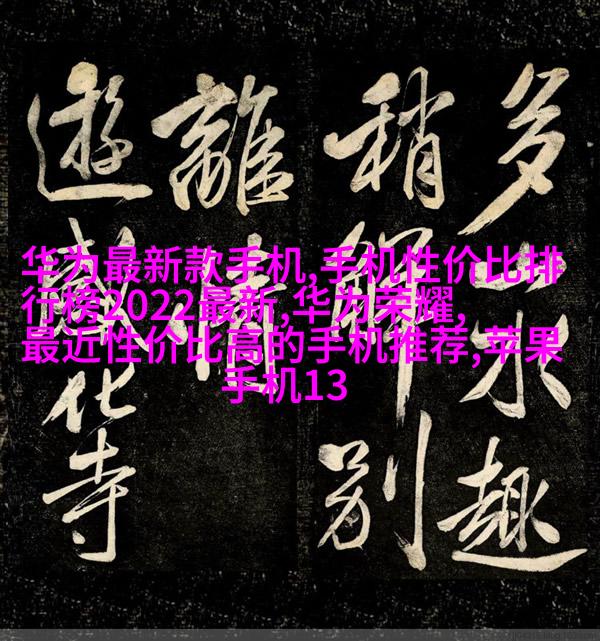 多山水趣
稍解别
離情
遊感化寺
华为最新款手机,手机性价比排
行榜2022最新,华为荣耀,
最近性价比高的手机推荐,苹果
手机13